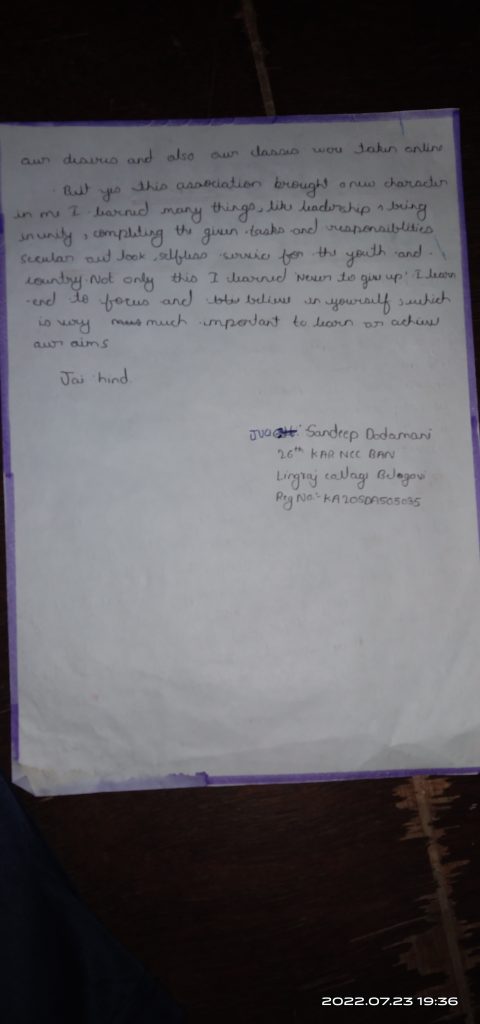 our desires and also our classes were taken online
But yes this association brought a new character
in me I learned many things, like leadership, bring
in unity, completing the given tasks and responsiblities
secular out look, selfless service for the youth and
country. Not only this I learned never to give up. I learn
end to focus and believe in yourself, which
is very much important to learn or achieve
our aims
Jai hind.
Sandeep Dodamani
26th KAR NCC BAN
Lingraj collage Belagavi
Reg No:- KA20SDA505035
2022.07.23 19:36